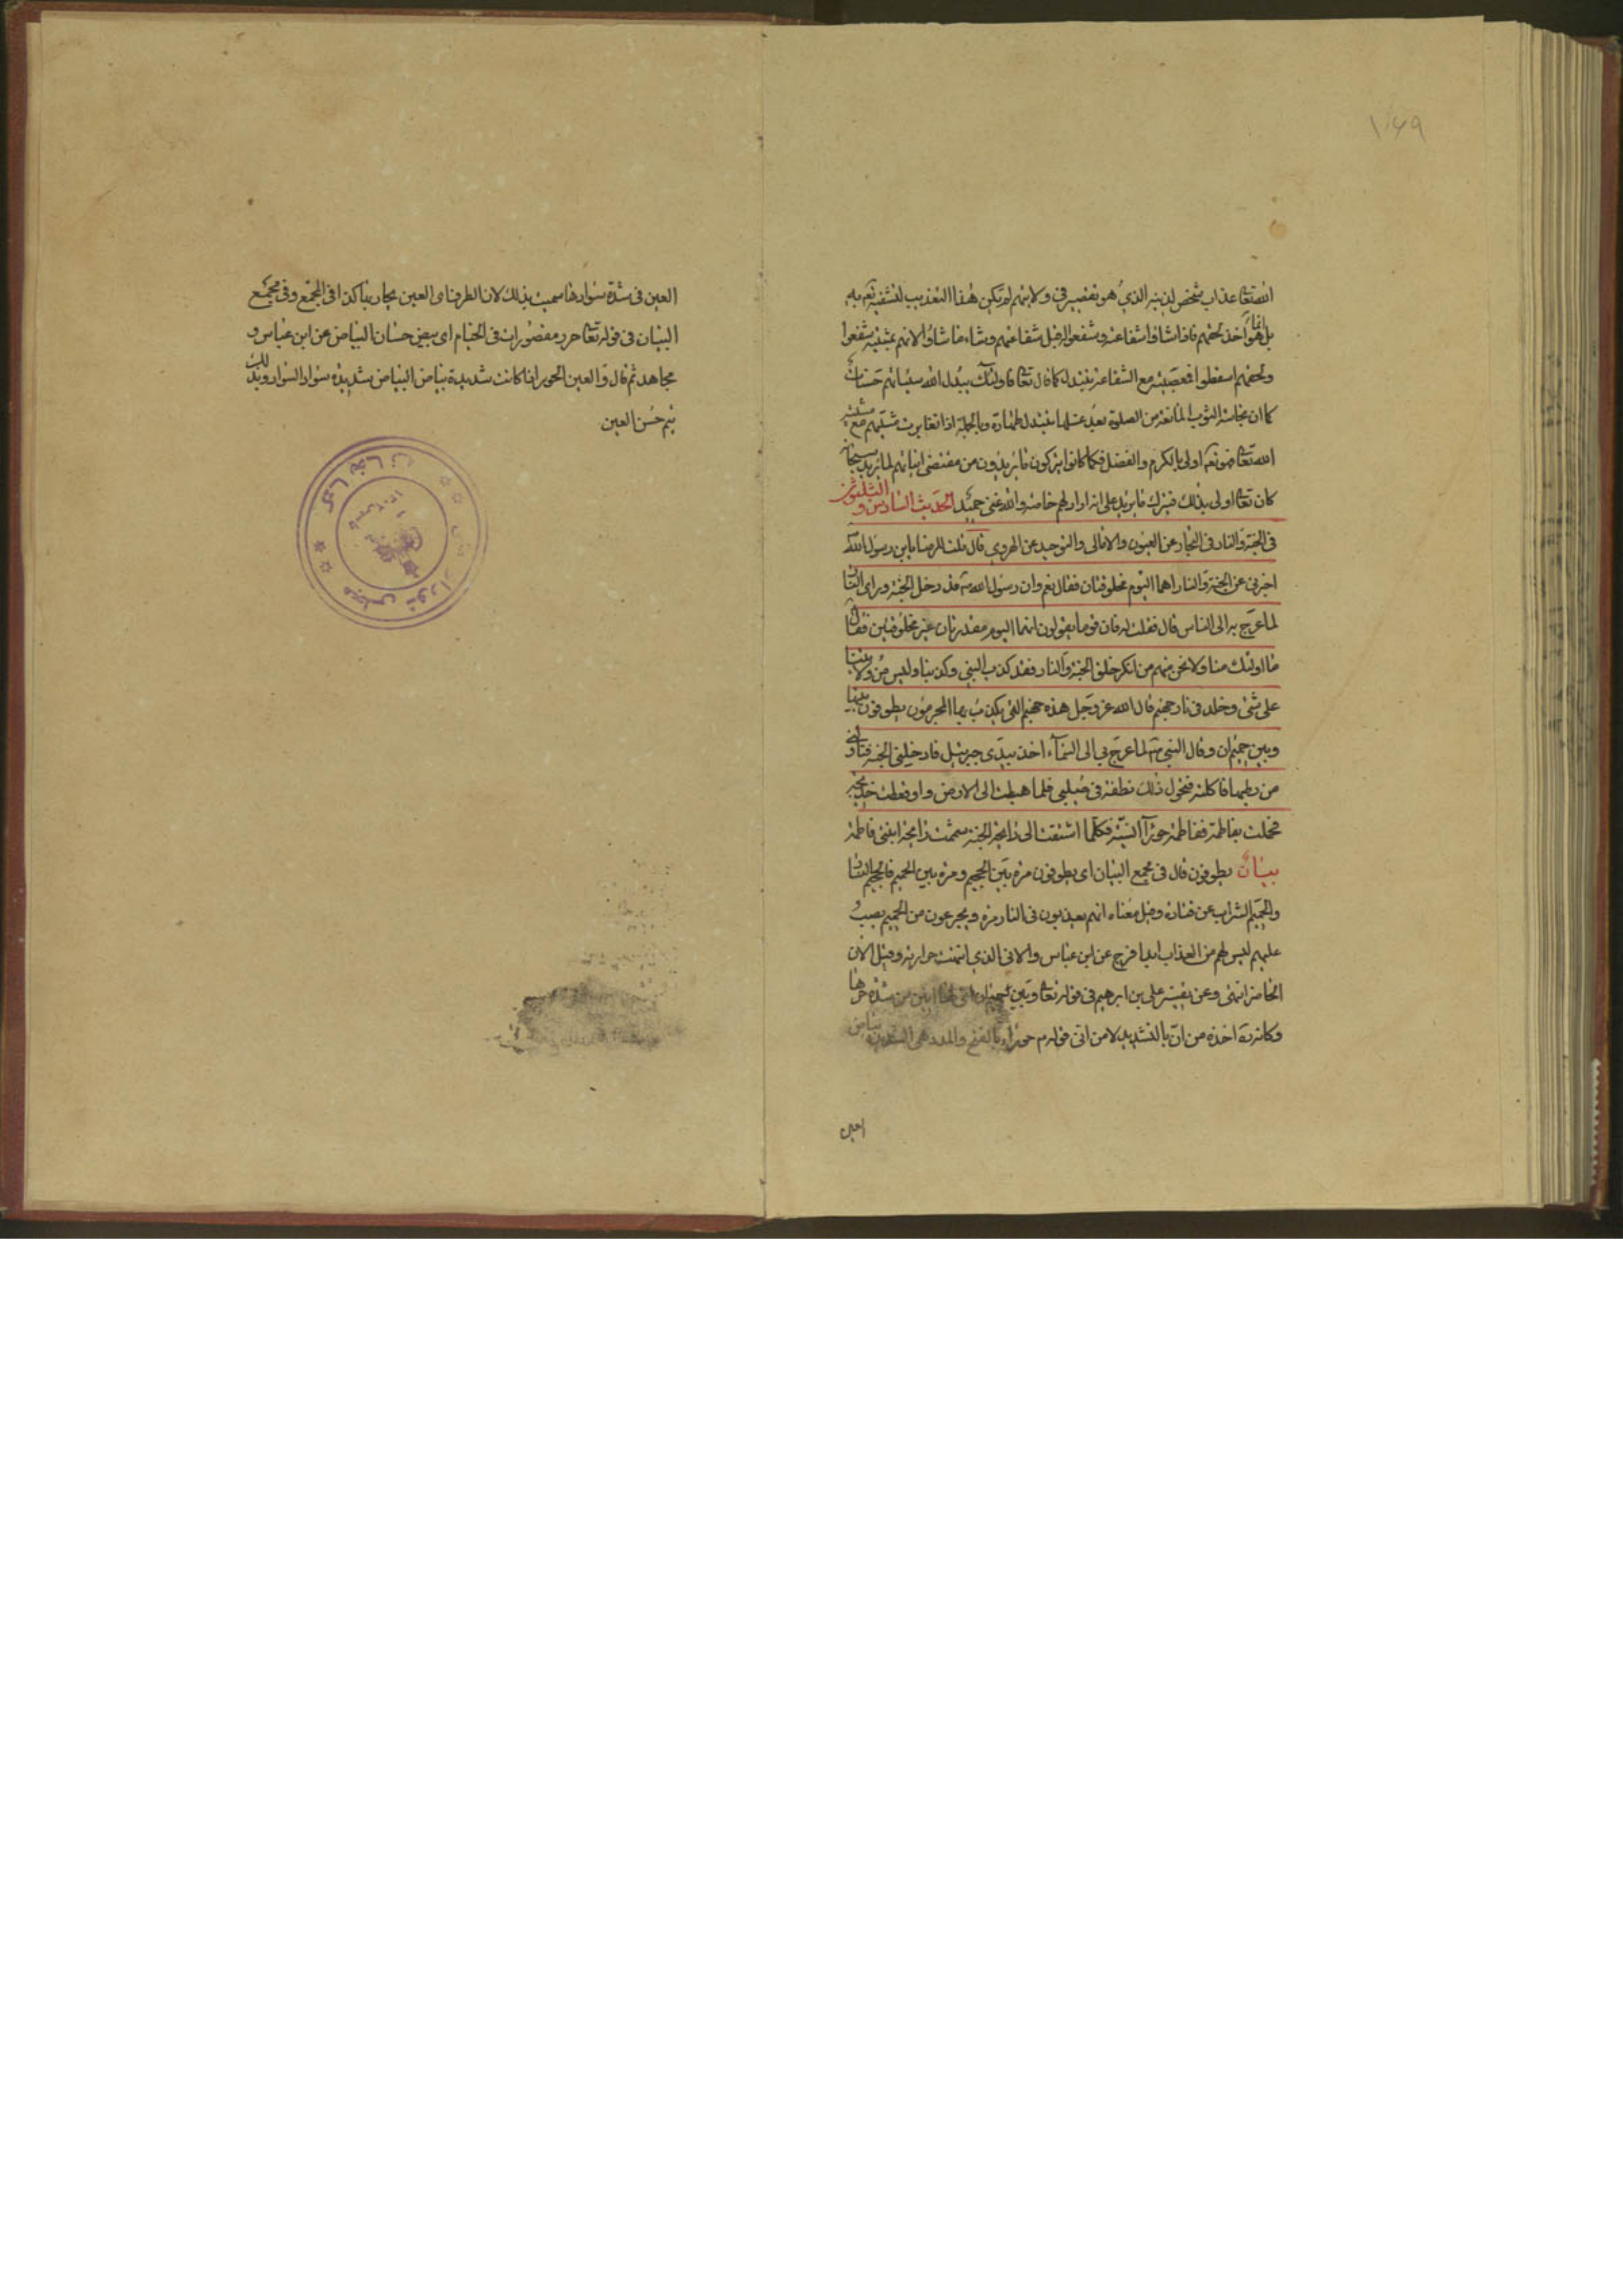 ۱۰۶۹
الله تعالى عذاب شخص لذنبه الذي هو تقصير في ولايتهم لم يكن هذا التعذيب لتشفيه تعالى به
بل هو اخذ لحقهم فاذا شاؤا شفاعته وشفعوا له قبل شفاعتهم وشاء ما شاؤا لانهم
ولحقهم اسقطوا فمعصيته مع الشفاعة تتبدل كما قال تعالى فاولئك يبدل الله سيئاتهم حسنات
كما ان نجاسة الثوب المانعة من الصلوة بعد غسلها تتبدل طهارة وبالجملة اذا تغايرت مشيتهم مع مشية
الله تعالى فهو تعالى اولى بالكرم والفضل فكما كانوا يتركون ما يريدون من مقتضى لما يريد سبحانه
كان تعالى اولى بذلك فيترك ما يريد على ما ارادلهم خاصة والله غني حميد الحديث السادس والثلثون
في الجنة والنار في البحار عن العيون والامالي والتوحيد عن الهروي قال قلت للرضا يابن رسول الله
اخبرني عن الجنة والنار اهما اليوم مخلوقتان فقال نعم وان رسول الله ص قد دخل الجنة وراى النار
لما عرج به الى السماء قال فقلت له فان قوما يقولون انهما اليوم مقدرتان غير مخلوقتين فقال
ما اولئك منا ولا نحن منهم من انكر خلق الجنة والنار فقد كذب النبي وكذبنا وليس من ولايتنا
على شئ وخلد في نار جهنم قال الله عز وجل هذه جهنم التي يكذب بها المجرمون يطوفون بينها
وبين حميم ان وقال النبي ص لما عرج بي الى السماء اخذ بيدي جبرئيل فادخلني الجنة فناولني
من رطبها فاكلته فتحول ذلك نطفة في صلبي فلما هبطت الى الارض واوقعت خديجة
فحملت بفاطمة ففاطمة حوراء انسية فكلما اشتقت الى رايحة الجنة شممت رايحة ابنتي فاطمة
بيان يطوفون قال في مجمع البيان اى يطوفون مرة بين الجحيم ومرة بين الحميم فالجحيم النار
والحميم الشراب عن قتادة وقيل معناه انهم يعذبون في النار مرة ويجرعون من الحميم يصب
عليهم ليس لهم من العذاب ابدا فرج عن ابن عباس والاني الذي انتهت حرارته وقيل الآن
الحاضر انتهى وعن تفسير علي بن ابرهيم في قوله تعالى وبين حميم ان من شدة حرها
وكانه ره اخذه من ان بالتشديد لا من انى قوله م حوراء بالفتح والمد هي الشديدة بياض
العين
العين في شدة سوادها سميت بذلك لان الطرف اى العين يحار بها كذا في المجمع وفي مجمع
البيان في قوله تعالى حور مقصورات في الخيام اى بيض حسان البياض عن ابن عباس و
مجاهد ثم قال و العين الحوراء اذا كانت شديدة بياض البياض شديدة سواد السواد وبذلك
يتم حسن العين